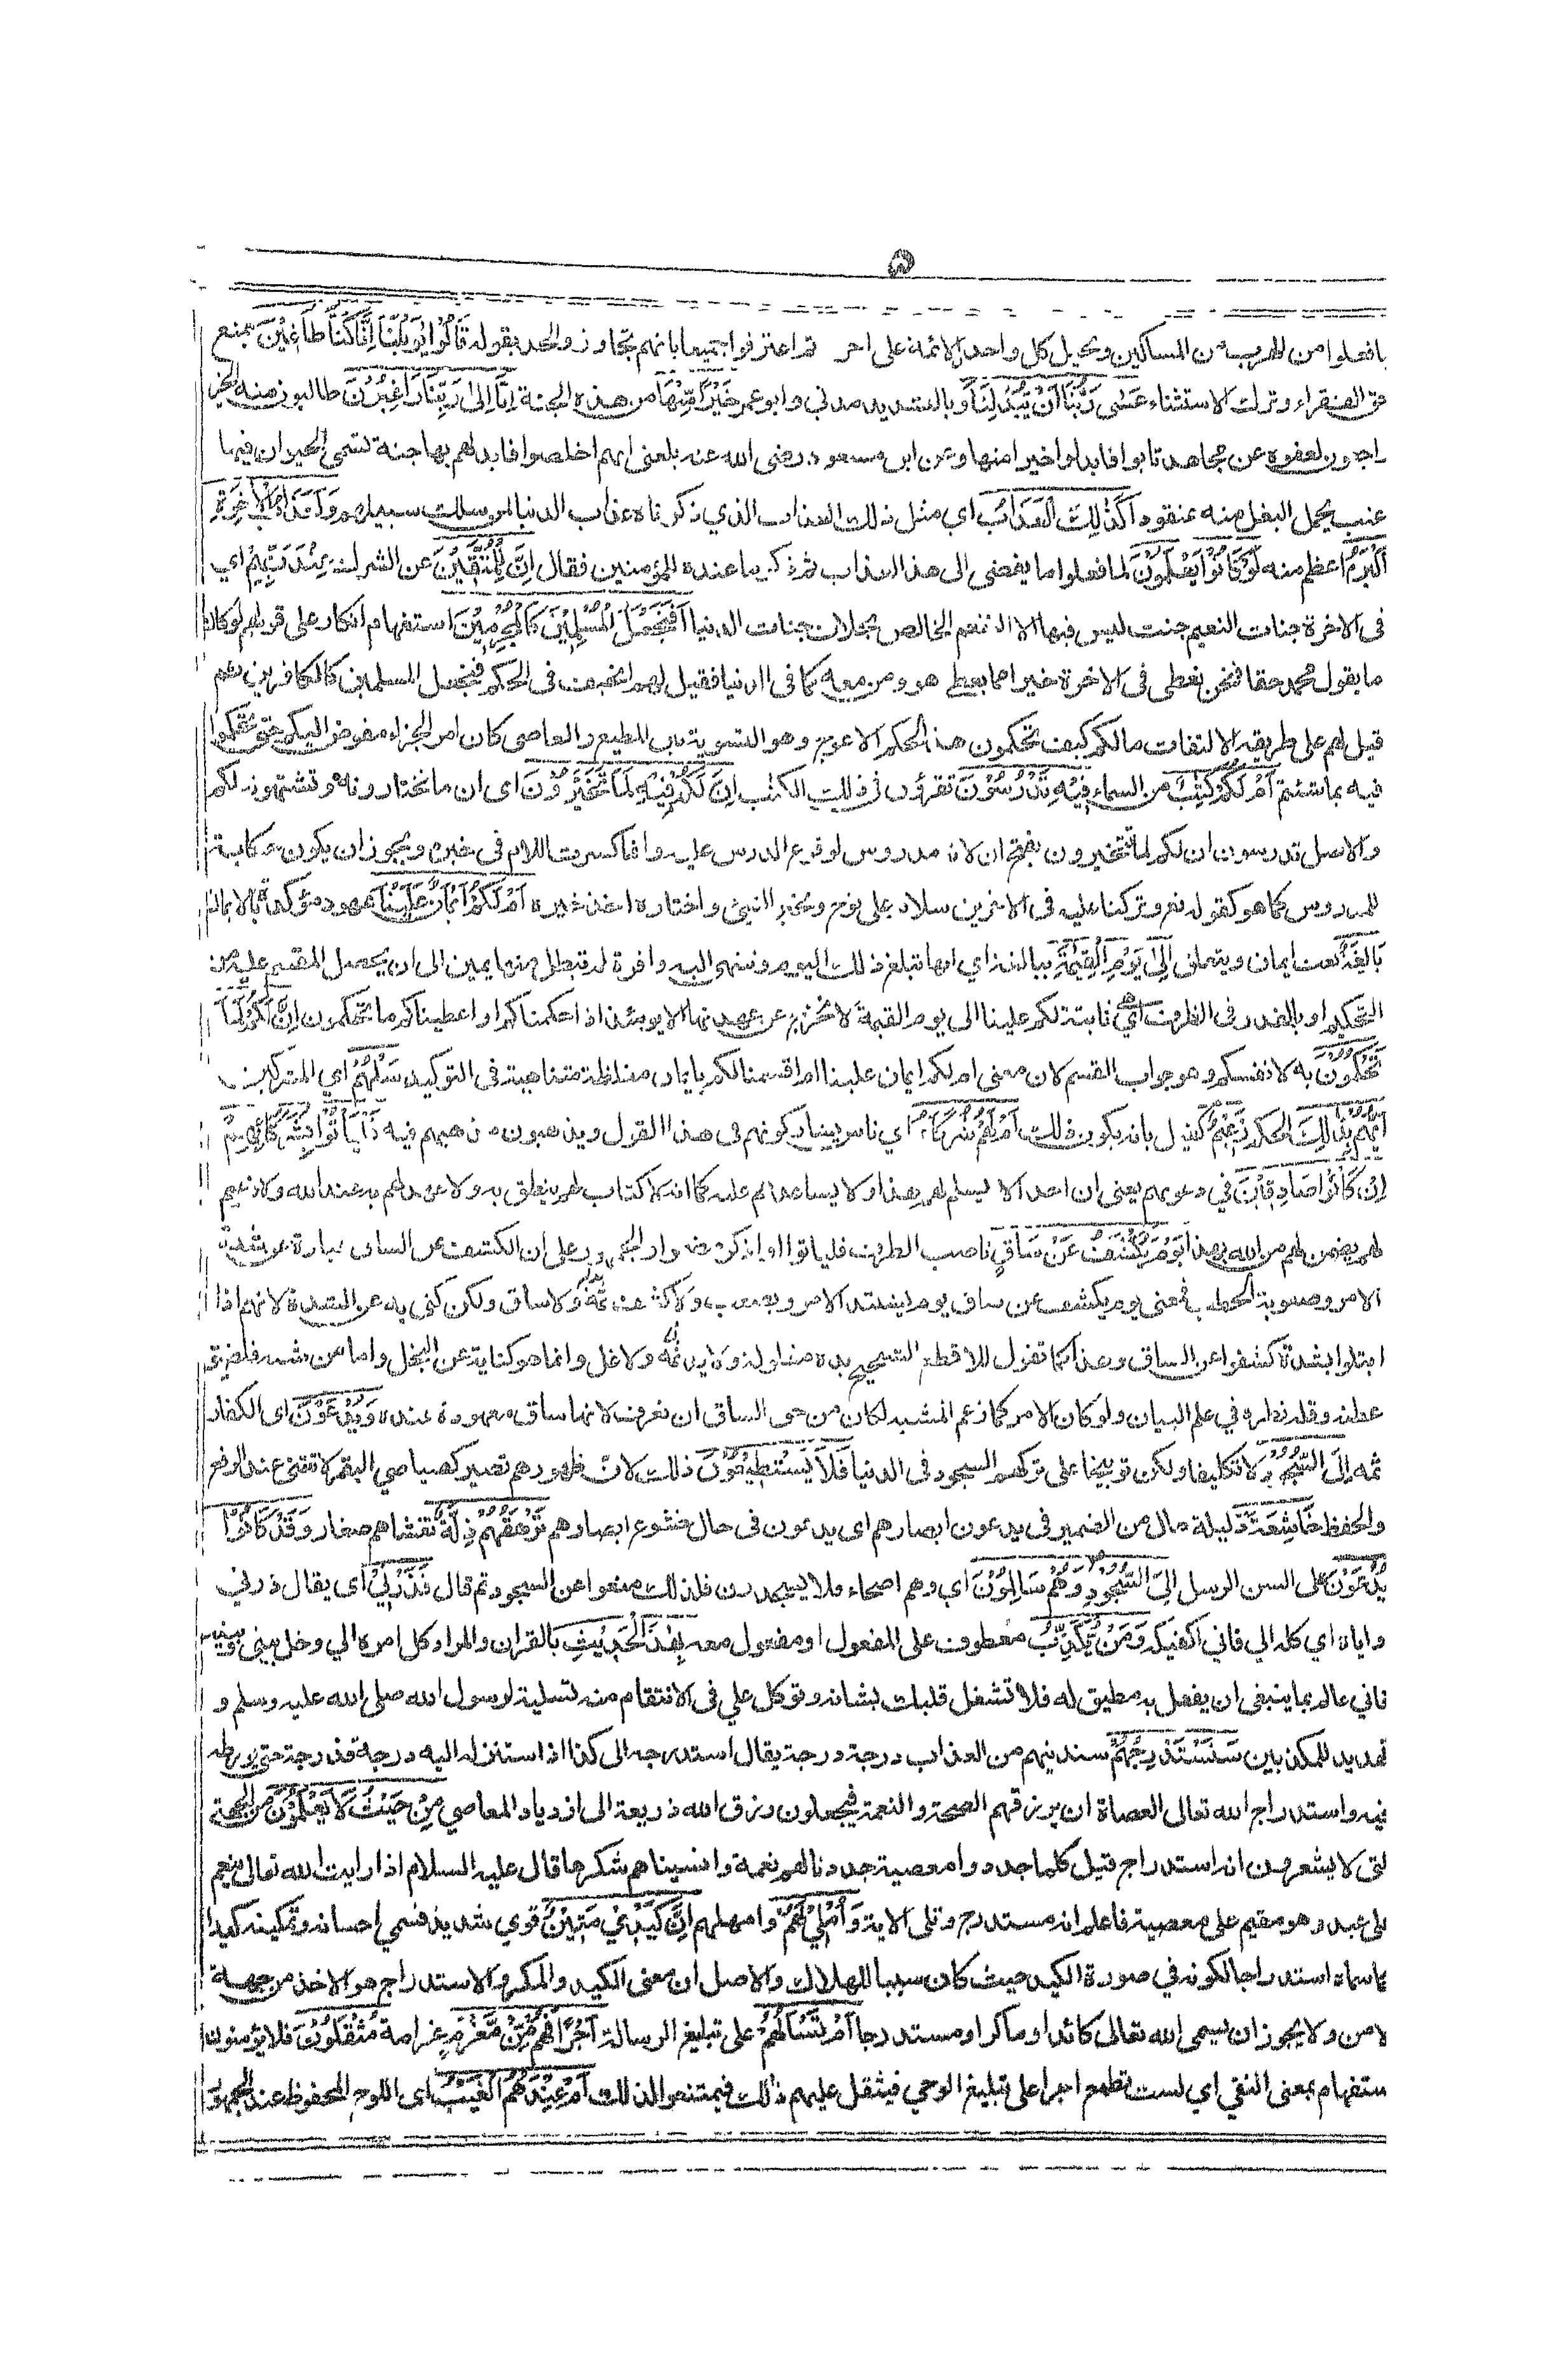 ۵
ما فعلوا من الهرب من المساكين ويحيل كل واحد اللائمة على اخر ثم اعترفوا جميعا بانهم تجاوزوا الحد بقوله قَالُوْا يٰوَيْلَنَا اِنَّا كُنَّا طَاغِيْنَ بمنع
حق الفقراء وترك الاستثناء عَسٰى رَبُّنَا اَنْ يُّبْدِلَنَا وبالتشديد مدني وابو عمر خَيْرًا مِّنْهَا من هذه الجنة اِنَّا اِلٰى رَبِّنَا رَاغِبُوْنَ طالبون منه الخير
راجون لعفوه عن مجاهد تابوا فابدلوا خيرا منها وعن ابن مسعود رضى الله عنه بلغنى انهم اخلصوا فابدلهم بها جنة تسمى الحيوان فيها
عنب يحمل البغل منه عنقودا كَذٰلِكَ الْعَذَابُ اى مثل ذلك العذاب الذي ذكرناه عذاب الدنيا لمن سلك سبيلهم وَلَعَذَابُ الْاٰخِرَةِ
اَكْبَرُ اعظم منه لَوْ كَانُوْا يَعْلَمُوْنَ لما فعلوا ما يفضى الى هذا العذاب ثم ذكر ما عنده للمؤمنين فقال اِنَّ لِلْمُتَّقِيْنَ عن الشرك عِنْدَ رَبِّهِمْ اي
فى الاخرة جنات النعيم جنت ليس فيها الا التنعم الخالص بخلاف جنات الدنيا اَفَنَجْعَلُ الْمُسْلِمِيْنَ كَالْمُجْرِمِيْنَ استفهام انكار على قولهم لو كان
ما يقول محمد حقا فنحن نعطى فى الاخرة خيرا مما يعطى هو ومن معه كما فى الدنيا فقيل لهم انحيف فى الحكم فنجعل المسلمين كالكافرين ثم
قيل لهم على طريقة الالتفات مالكم كيف تحكمون هذا الحكم الاعوج وهو التسوية بين المطيع والعاصى كان امر الجزاء مفوض اليكم حتى تحكموا
فيه بما شئتم اَمْ لَكُمْ كِتٰبٌ من السماء فِيْهِ تَدْرُسُوْنَ تقرؤن فى ذلك الكتب اِنَّ لَكُمْ فِيْهِ لَمَا تَخَيَّرُوْنَ اى ان ما تختارونه وتشتهونه لكم
والاصل تدرسون ان لكم لما تتخيرون بفتح ان لانه مدروس لوقوع الدرس عليه وانما كسرت للام فى خبره ويجوز ان يكون حكاية
للمدروس كما هو كقوله نعم وتركنا عليه فى الاخرين سلام على نوح وتخير الشئ واختاره اخذ خيره اَمْ لَكُمْ اَيْمَانٌ عَلَيْنَا عهود مؤكدة بالايمان
بَالِغَةٌ نعت ايمان ويتعلق اِلٰى يَوْمِ الْقِيٰمَةِ ببالغة اي انها تبلغ ذلك اليوم وتنتهى اليه وافرة لم تبطل منها يمين الى ان يحصل المقسم عليه من
التحكيم او بالمقدر فى الظرف اى هى ثابتة لكم علينا الى يوم القيمة لا نخرج عن عهدتها الا يومئذ اذا حكمناكم واعطيناكم ما تحكمون اِنَّ لَكُمْ لَمَا
تَحْكُمُوْنَ به لانفسكم وهو جواب القسم لان معنى ام لكم ايمان علينا ام اقسمنا لكم بايمان مغلظة متناهية فى التوكيد سَلْهُمْ اي المشركين
اَيُّهُمْ بِذٰلِكَ الحكم زَعِيْمٌ كفيل بانه يكون ذلك اَمْ لَهُمْ شُرَكَاءُ اي ناس يشاركونهم فى هذا القول ويذهبون مذهبهم فيه فَلْيَأْتُوْا بِشُرَكَائِهِمْ
اِنْ كَانُوْا صَادِقِيْنَ في دعوهم يعنى ان احدا لا يسلم لهم بهذا ولا يساعدهم عليه كما انه لا كتاب لهم ينطق به ولا عهد لهم به عند الله ولا زعيم
لهم يضمن لهم من الله بهذا يَوْمَ يُكْشَفُ عَنْ سَاقٍ ناصب الظرف فلياتوا او اذكر مضمرا والجمهور على ان الكشف عن الساق عبارة عن شدة
الامر وصعوبة الخطب فمعنى يوم يكشف عن ساق يوم يشتد الامر ويصعب ولا كشف ثمه ولا ساق ولكن كنى به عن الشدة لانهم اذا
ابتلوا بشدة كشفوا عن الساق وهذا كما تقول للاقطع الشحيح يده مغلولة ولا يد ثمه ولا غل وانما هو كناية عن البخل واما من شبه فلضيق
عطنه وقلة نظره في علم البيان ولو كان الامر كما زعم المشبه لكان من حق الساق ان يعرف لانها ساق معهودة عنده وَيُدْعَوْنَ اى الكفار
ثمه اِلَى السُّجُوْدِ لا تكليفا ولكن توبيخا على تركهم السجود فى الدنيا فَلَا يَسْتَطِيْعُوْنَ ذلك لان ظهورهم تصير كصياصى البقر لا تنثنى عند الرفع
والخفض خَاشِعَةً ذليلة حال من الضمير فى يدعون ابصارهم اى يدعون فى حال خشوع ابصارهم تَرْهَقُهُمْ ذِلَّةٌ تغشاهم صغار وَقَدْ كَانُوْا
يُدْعَوْنَ على السن الرسل اِلَى السُّجُوْدِ وَهُمْ سَالِمُوْنَ اي وهم اصحاء فلا يسجدون فلذلك منعوا عن السجود ثم قال فَذَرْنِيْ اى يقال ذرني
واياه اي كله الي فاني اكفيكه وَمَنْ يُّكَذِّبُ معطوف على المفعول او مفعول معه بِهٰذَا الْحَدِيْثِ بالقران والمراد كل امره الي وخل بينى وبينه
فاني عالم بما ينبغى ان يفعل به مطيق له فلا تشغل قلبك بشانه وتوكل علي فى الانتقام منه تسلية لرسول الله صلى الله عليه وسلم و
تهديد للمكذبين سَنَسْتَدْرِجُهُمْ سندنيهم من العذاب درجة درجة يقال استدرجه الى كذا اذا استنزله اليه درجة فدرجة حتى يورطه
فيه واستدراج الله تعالى العصاة ان يرزقهم الصحة والنعمة فيجعلون رزق الله ذريعة الى ازدياد المعاصي مِنْ حَيْثُ لَا يَعْلَمُوْنَ من الجهة
لتى لا يشعرون انه استدراج قيل كلما جددوا معصية جددنا لهم نعمة وانسيناهم شكرها قال عليه السلام اذا رايت الله تعالى ينعم
على عبد وهو مقيم على معصية فاعلم انه مستدرج وتلى الاية وَاُمْلِيْ لَهُمْ وامهلهم اِنَّ كَيْدِيْ مَتِيْنٌ قوي شديد فسمي احسانه وتمكينه كيدا
كما سماه استدراجا لكونه في صورة الكيد حيث كان سببا للهلاك والاصل ان معنى الكيد والمكر والاستدراج هو الاخذ من جهة
لامن ولا يجوز ان يسمى الله تعالى كائدا وماكرا ومستدرجا اَمْ تَسْاَلُهُمْ على تبليغ الرسالة اَجْرًا فَهُمْ مِّنْ مَّغْرَمٍ غرامة مُثْقَلُوْنَ فلا يؤمنون
ستفهام بمعنى النفي اي لست تطمع اجرا على تبليغ الوحي فيثقل عليهم ذلك فيمتنعوا لذلك اَمْ عِنْدَهُمُ الْغَيْبُ اى اللوح المحفوظ عند الجمهور